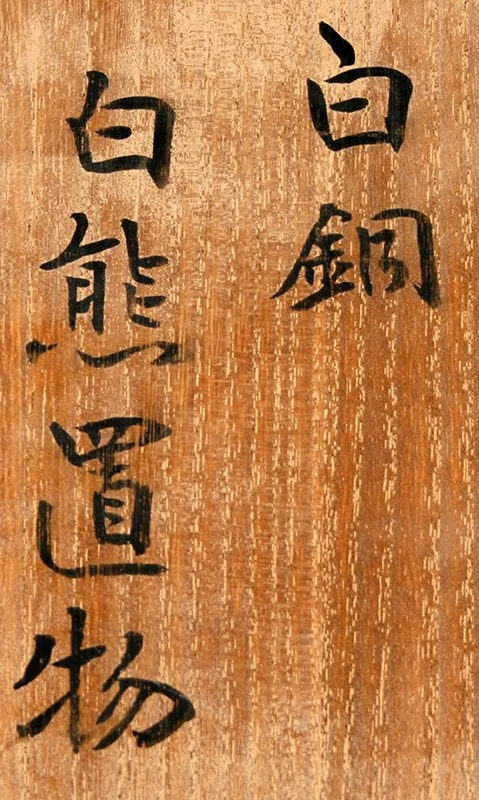 白銅
白熊置物